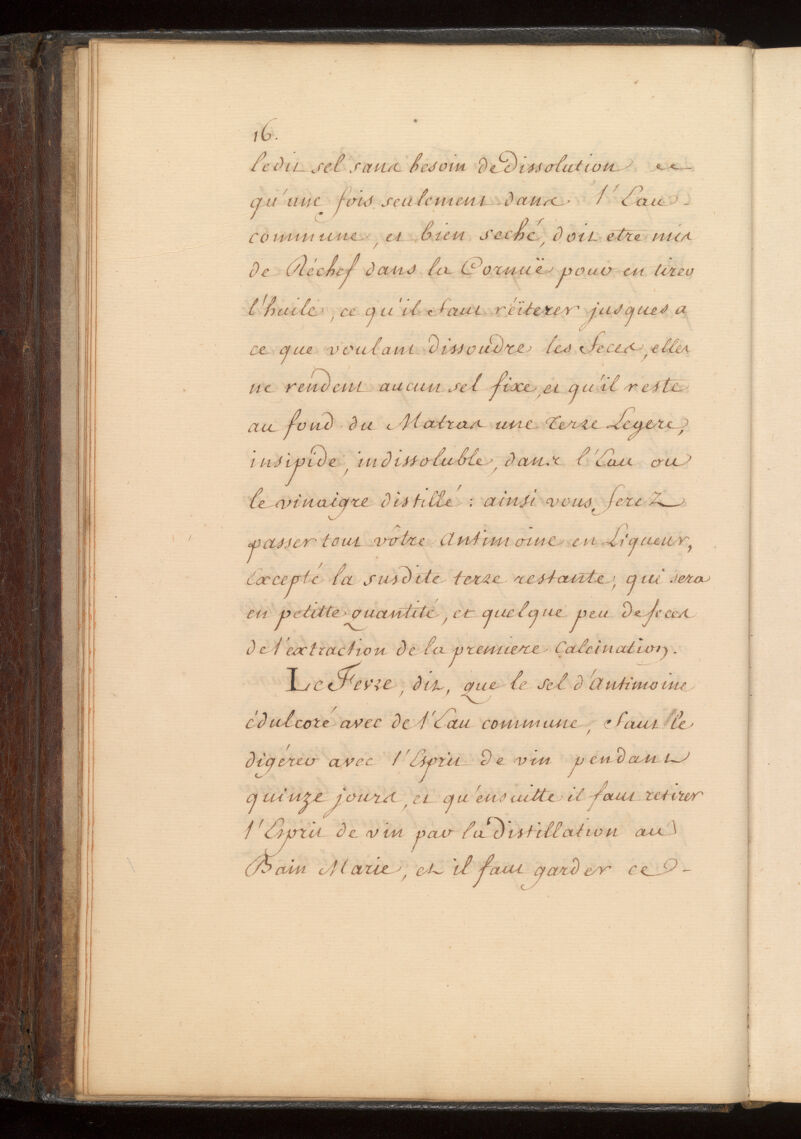 16.
ledit sel sans besoin de Dissolution
qu'une fois seulement dans l'Eau
commune, et bien seché, doit etre mis
de Réchef dans la Cornuë pour en tirer
l'huile, ce qu'il faut réiterer jusques a
ce que voulant dissoudre les feces, elles
ne rendent aucun sel fixe, et qu'il reste
au fond du Matras une terre Legere,
insipide, indissoluble, dans l'Eau ou
le vinaigre distillé : ainsi vous ferez
passer tout vôtre Antimoine en Liqueur,
Excepté la susdite terre restante, qui sera
en petitte quantité, et quelque peu de feces
de l'extraction de la premiere Calcination.
Le Fevre, dit, que le sel d'Antimoine
édulcoré avec de l'Eau commune, faut le
digérer avec l'Esprit de vin pendant
quinze jours, et qu'ensuitte il faut retirer
l'Esprit de vin par la Distillation au
Bain Marie, et il faut garder ce